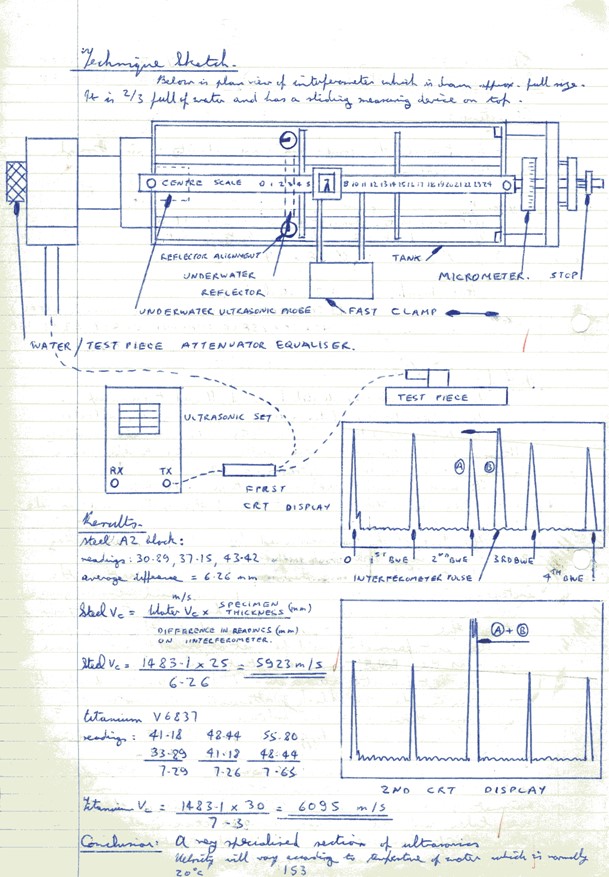 Technique Sketch.
Below is plan view of interferometer which is drawn approx. full size.
It is 2/3 full of water and has a sliding measuring device on top.
CENTRE SCALE 0 1 2 3 4 5 7 8 9 10 11 12 13 14 15 16 17 18 19 20 21 22 23 24
REFLECTOR ALIGNMENT
TANK
UNDERWATER
REFLECTOR
MICROMETER. STOP
UNDERWATER ULTRASONIC PROBE
FAST CLAMP
WATER / TEST PIECE ATTENUATOR EQUALISER.
TEST PIECE
ULTRASONIC SET
RX TX
FIRST
CRT DISPLAY
A B
0 1ST BWE 2ND BWE 3RD BWE
INTERFEROMETER PULSE 4TH BWE
Results.
Steel A2 block:
readings: 30.89, 37.15, 43.42
average difference = 6.26 mm
m/s.
Steel Vc = Water Vc x SPECIMEN THICKNESS (mm)
DIFFERENCE IN READINGS (mm)
ON INTERFEROMETER.
A + B
Steel Vc = 1483.1 x 25 = 5923 m/s
6.26
titanium V6837
readings: 41.18 48.44 55.80
33.89 41.18 48.44
7.29 7.26 7.65
2ND CRT DISPLAY
titanium Vc = 1483.1 x 30 = 6095 m/s
7.3
Conclusion: A very specialised section of ultrasonics
Velocity will vary according to temperature of water which is normally
20°c 153